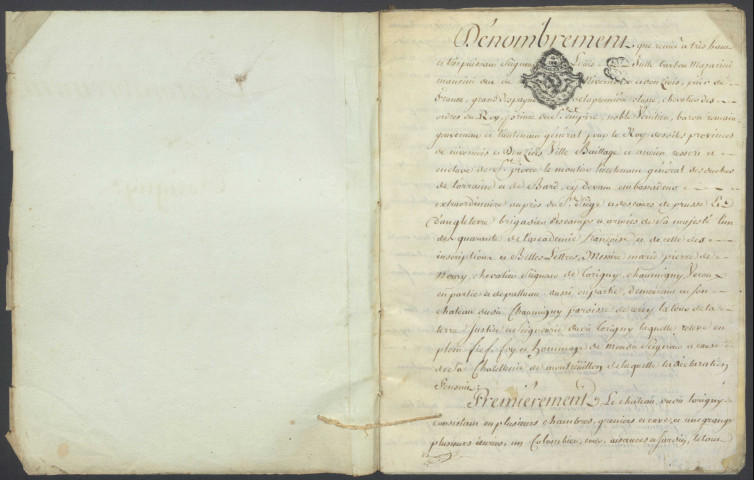 Dénombrement que rend à très haut
et très puissant Seigneur Louis Jules Barbon Mazarini
mancini duc de Nivernois et donziois, pair de
france, grand d'espagne de la première classe, chevalier des
ordres du Roy, prince du St. Empire, noble Vénitien, baron romain
gouverneur et lieutenant général pour le Roy desdites provinces
de nivernois et Donziois, Ville Bailliage et ancien ressort et
enclave de St. pierre le moutier lieutenant général des duchés
de Lorraine et de Bard, cy devant ambassadeur
extraordinaire auprès du St. Siège et des cours de prusse Et
d'angleterre brigadier des camps et armées de Sa majesté l'un
des quarante de l'academie françoise et de celle des
inscriptions et Belles Lettres, Messire marie pierre de
chevalier Seigneur de Chaumigny,
en partie et de aussi en partie, demeurant en son
chateau dudit Chaumigny paroisse de Cercy la tour de la
terre Justice et Seigneurie dudit laquelle relève en
plein fief, foy et hommage de mondit Seigneur à cause
de sa Chatellenie de montreuillon de laquelle la déclaration
s'ensuit.
Premièrement, Le chateau dudit
consistant en plusieurs chambres, greniers et cave, et une grange
plusieurs écuries, un Colombier, cour, aisances et Jardin, le tout